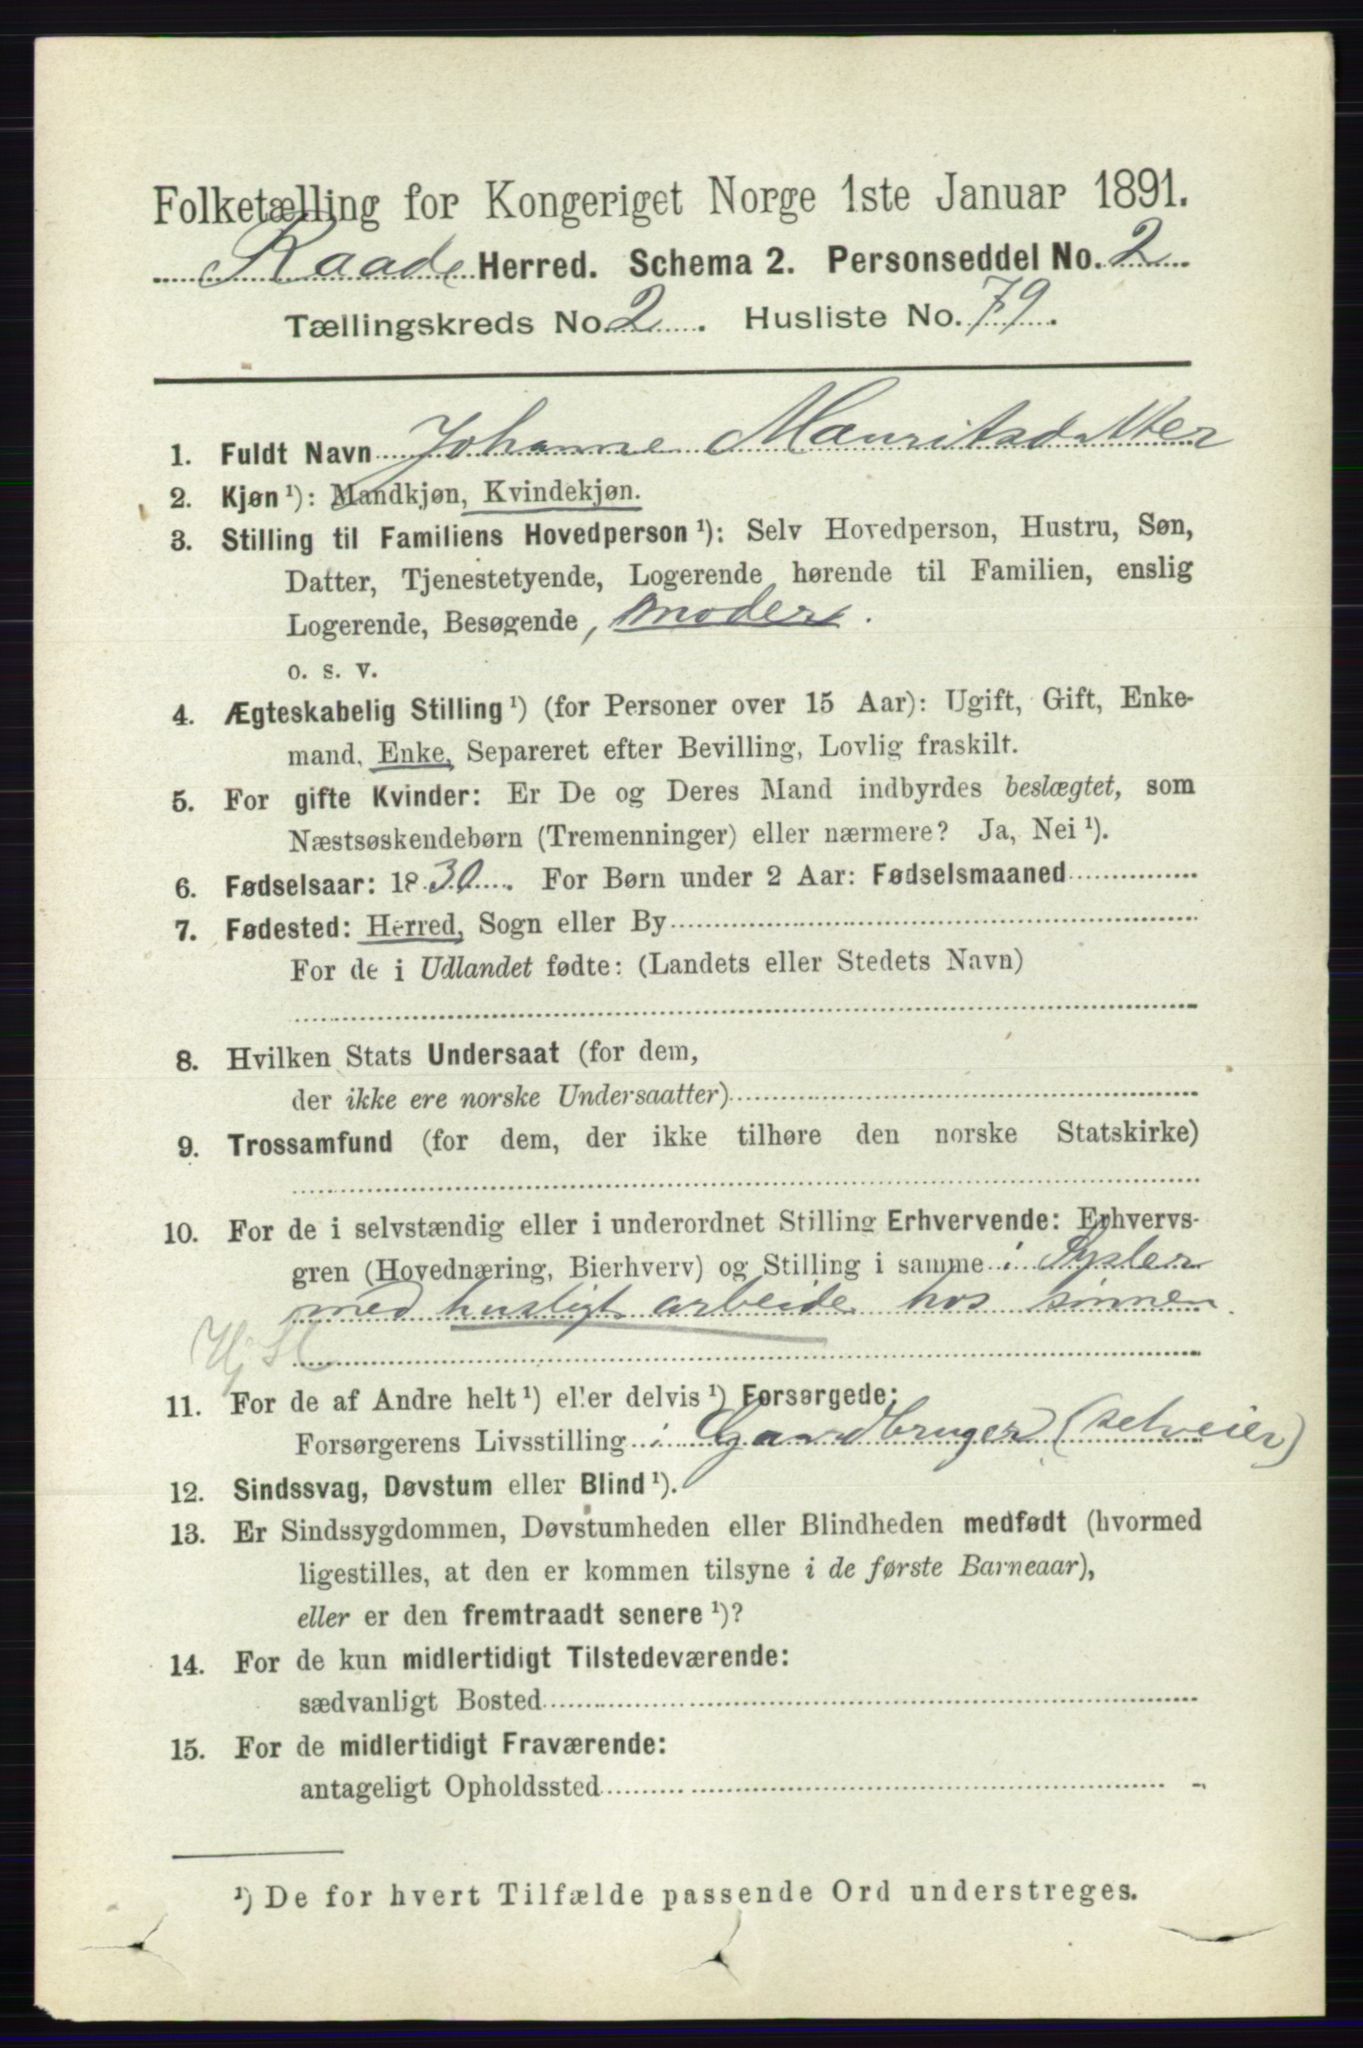 Folketælling for Kongeriget Norge 1ste Januar 1891.
Raade Herred. Schema 2. Personseddel No. 2
Tællingskreds No. 2. Husliste No. 79.
1. Fuldt Navn Johanne Mauritsdatter
2. Kjøn ¹): Mandkjøn, Kvindekjøn.
3. Stilling til Familiens Hovedperson ¹): Selv Hovedperson, Hustru, Søn,
Datter, Tjenestetyende, Logerende hørende til Familien, enslig
Logerende, Besøgende, moder.
o. s. v.
4. Ægteskabelig Stilling ¹) (for Personer over 15 Aar): Ugift, Gift, Enke-
mand, Enke, Separeret efter Bevilling, Lovlig fraskilt.
5. For gifte Kvinder: Er De og Deres Mand indbyrdes beslægtet, som
Næstsøskendebørn (Tremenninger) eller nærmere? Ja, Nei ¹).
6. Fødselsaar: 1830. For Børn under 2 Aar: Fødselsmaaned
7. Fødested: Herred, Sogn eller By
For de i Udlandet fødte: (Landets eller Stedets Navn)
8. Hvilken Stats Undersaat (for dem,
der ikke ere norske Undersaatter)
9. Trossamfund (for dem, der ikke tilhøre den norske Statskirke)
10. For de i selvstændig eller i underordnet Stilling Erhvervende: Erhvervs-
gren (Hovednæring, Bierhverv) og Stilling i samme: Sysler
med husligt arbeide hos sinnen
11. For de af Andre helt ¹) eller delvis ¹) Forsørgede:
Forsørgerens Livsstilling: Gaardbruger (selveier)
12. Sindssvag, Døvstum eller Blind ¹).
13. Er Sindssygdommen, Døvstumheden eller Blindheden medfødt (hvormed
ligestilles, at den er kommen tilsyne i de første Barneaar),
eller er den fremtraadt senere ¹)?
14. For de kun midlertidigt Tilstedeværende:
sædvanligt Bosted
15. For de midlertidigt Fraværende:
antageligt Opholdssted
¹) De for hvert Tilfælde passende Ord understreges.